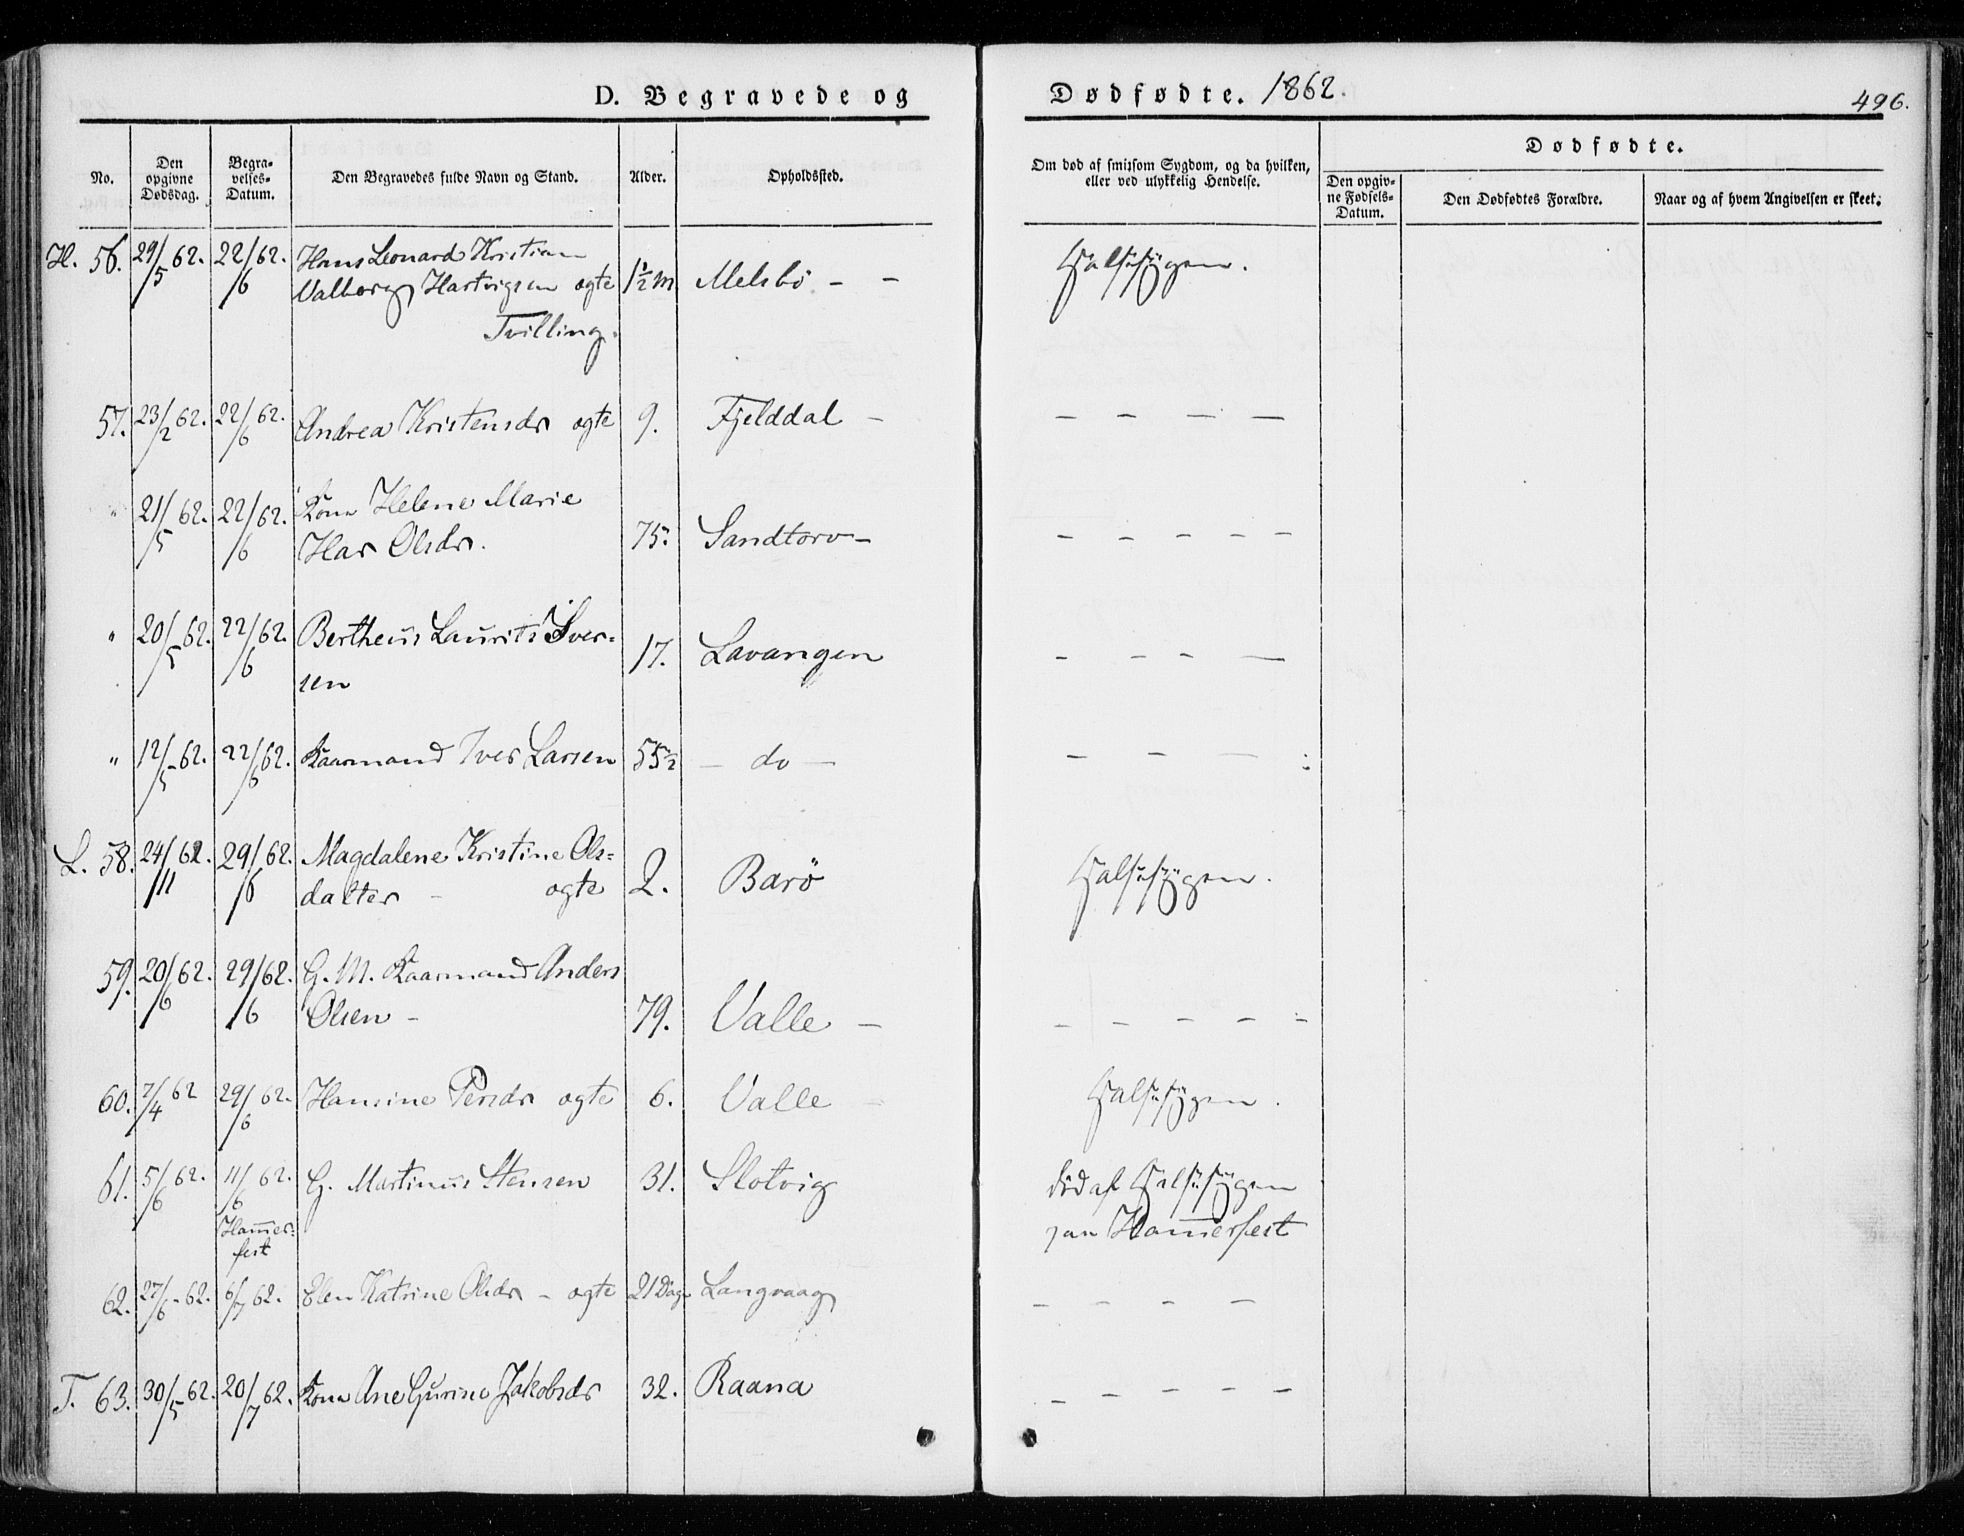 D. Begravede og Dødfødte. 1862.
496.
No.
Den opgivne Dødsdag.
Begravelses-Datum.
Den Begravedes fulde Navn og Stand.
Alder.
Opholdssted.
Om død af smitsom Sygdom, og da hvilken, eller ved ulykkelig Hendelse.
Dødfødte.
Den opgivne Fødsels-Datum.
Den Dødfødtes Forældre.
Naar og af hvem Angivelsen er skeet.
H. 56. 29/5 62. 22/6 62. Hans Leonard Kristian
Valborg Hartvigsen ægte 1½ m Melsbö - - Halssygen.
Tvilling.
57. 23/2 62. 22/6 62. Andrea Kristensdr ægte 9. Fjelddal - — — — —
" 21/5 62. 22/6 62. Kone Helene Marie
Har Olsdr. 75. Sandtorv - — - - - -
" 20/5 62. 22/6 62. Bertheus Laurits Iver=
sen 17. Lavangen - - - —
" 12/5 62. 22/6 62. Kaarmand Iver Larsen 55½ — do — — — —
L. 58. 24/11 61. 29/6 62. Magdalene Kristine Ols=
datter - ægte 2. Barö Halssygen.
59. 20/6 62. 29/6 62. G. M. Kaarmand Anders
Olsen - 79. Valle — - - - - -
60. 7/4 62 29/6 62. Hansine Persdr ægte 6. Valle Halssygen.
61. 5/6 62. 11/6 62. G. Martinus Stensen 31. Slotvig död af Halssygen
Hammer=
fest
paa Hammerfest
62. 27/6 62. 6/7 62. Elen Katrine Olsdr - ægte 21 Dage Langvaag - - - —
T. 63. 30/5 62. 20/7 62. Kone Ane Gurine Jakobsdr 32. Raana - - - - -